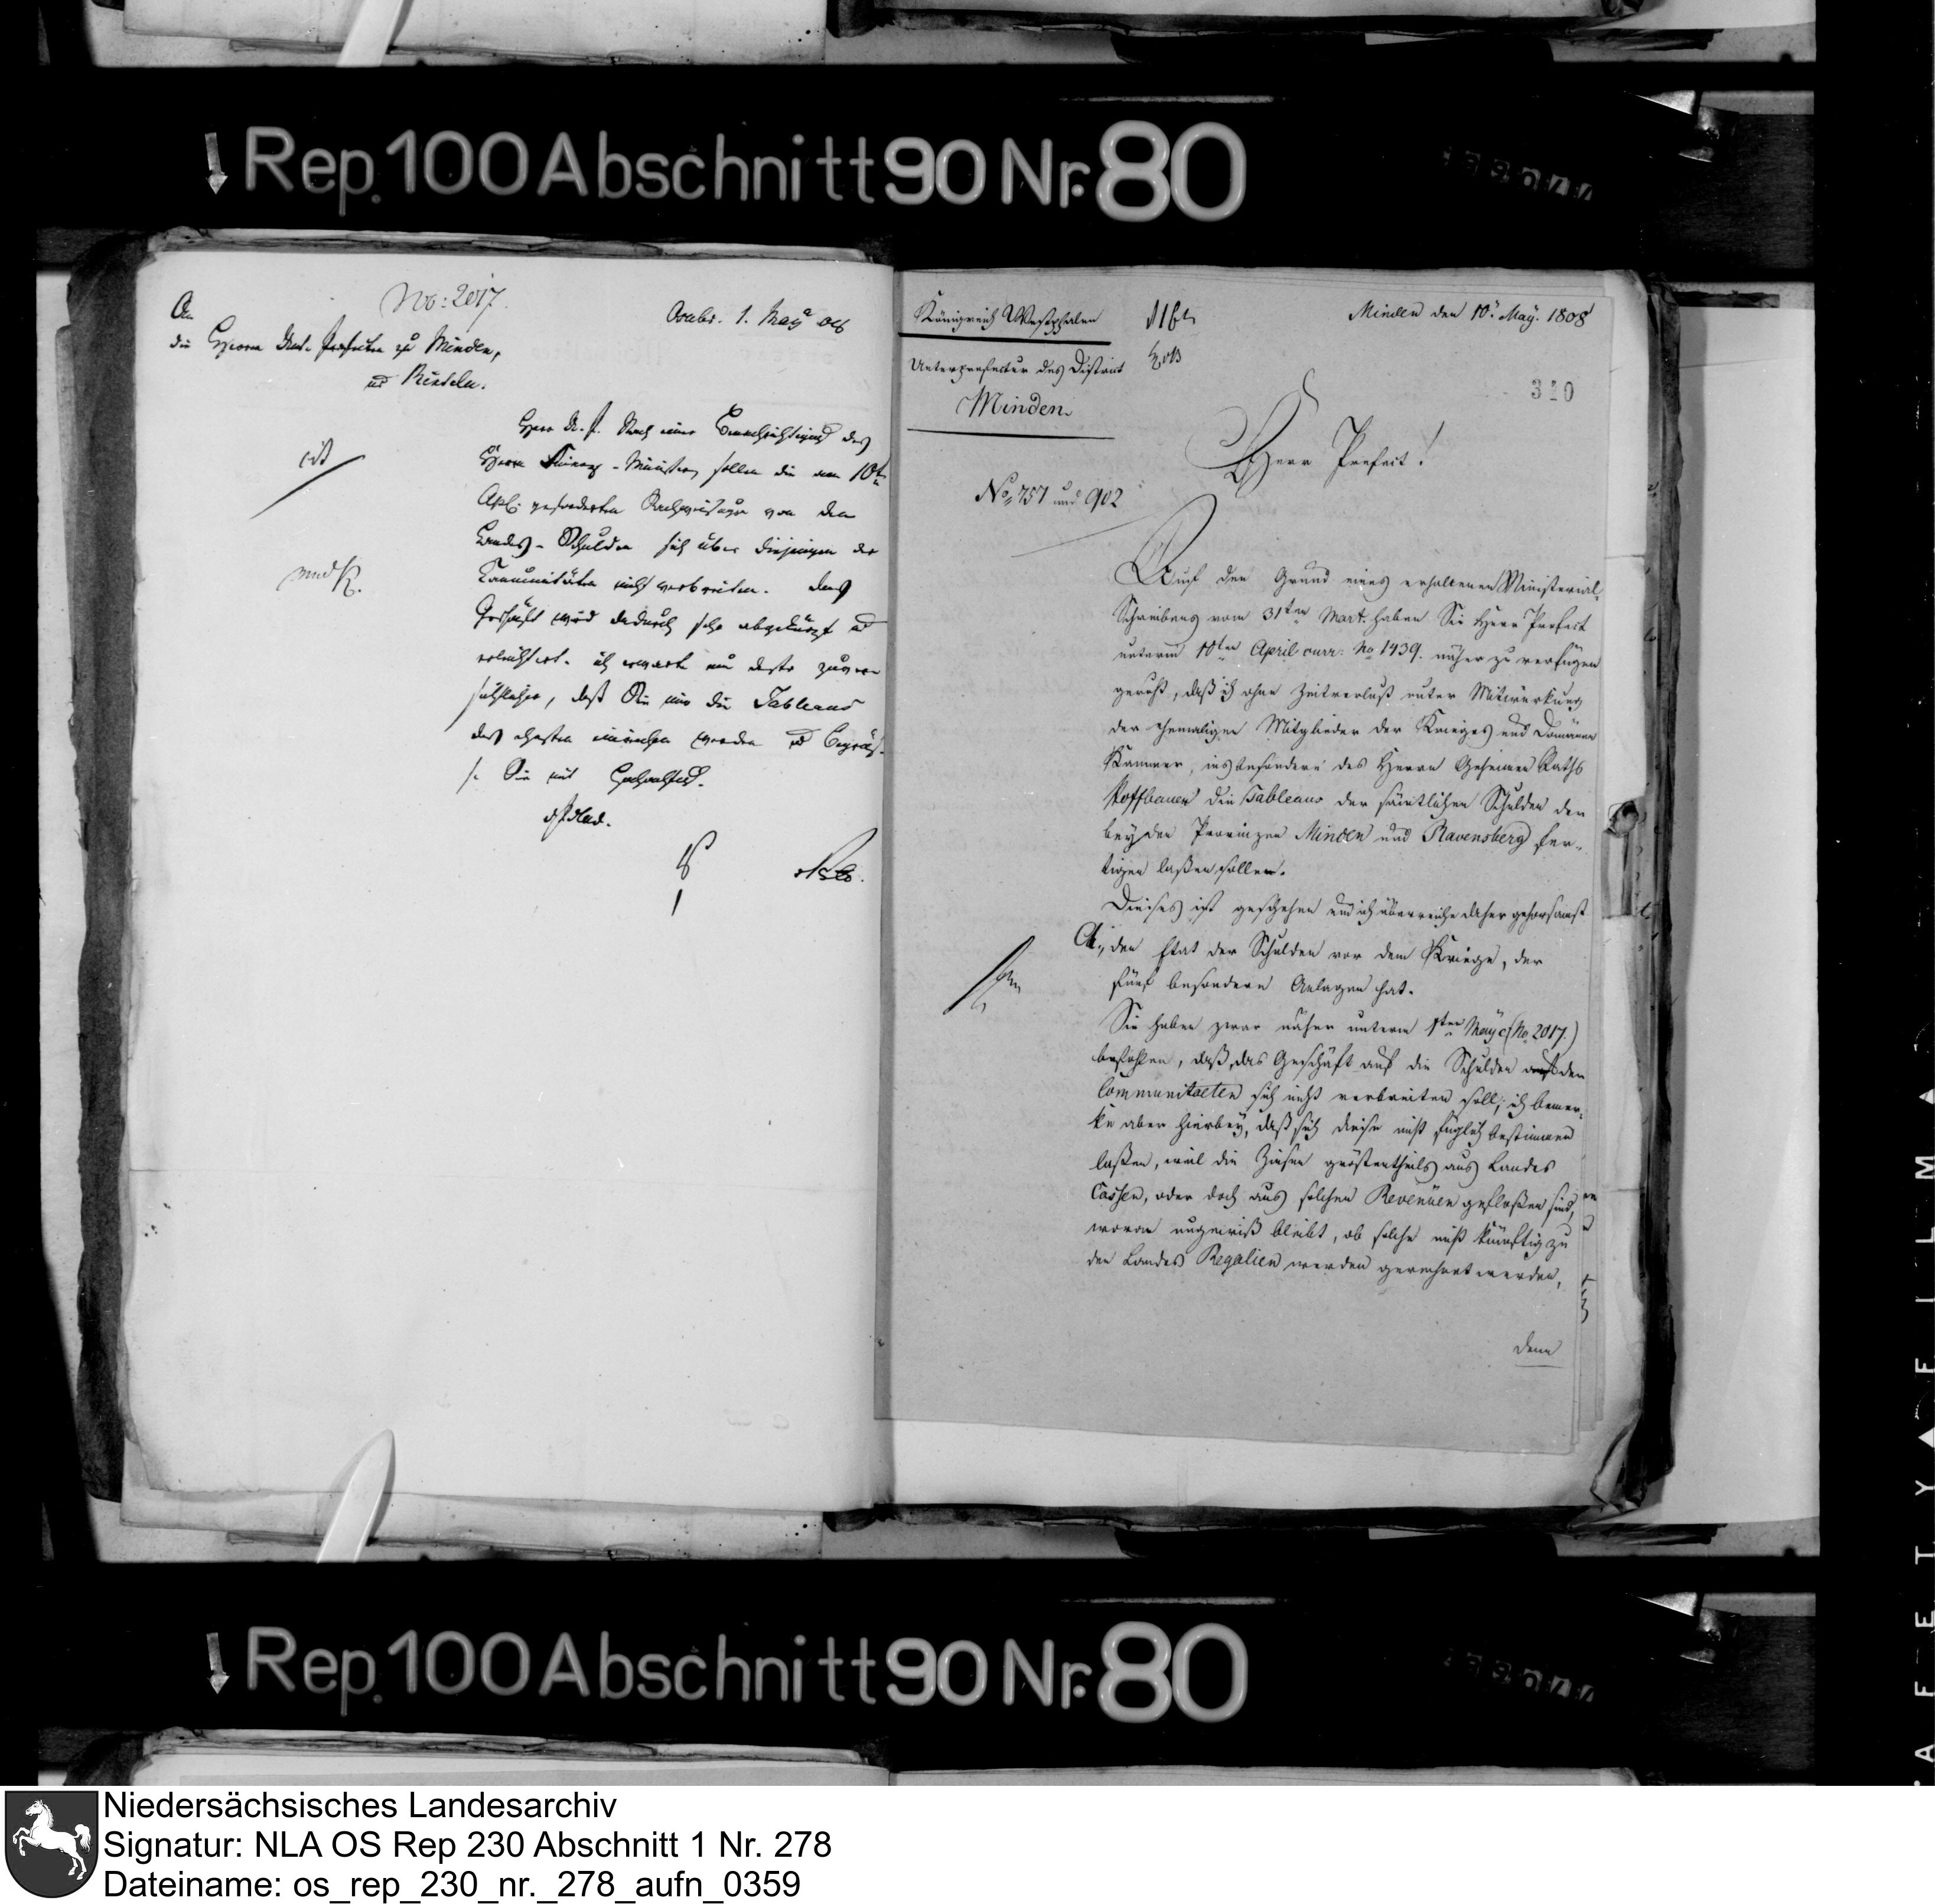 Rep. 100 Abschnitt 90 Nr. 80
No: 2017.
An
die Herrn Unt. Präfecten zu Minden,
und Rinteln.
Osnabr. 1. May 08
Herr U. P. Nach einer Benachrichtigung des
Herrn Finanz-Ministers sollen die am 10t
Apl. geforderten Nachweisungen von den
Landes-Schulden sich über diejenigen der
Communitäten nicht verbreiten. Das
Geschäft wird dadurch sehr abgekürzt und
erleichtert. ich erwarte nun desto zuver
sichtlicher, daß Sie mir die Tableaus
des ehesten einreichen werden und begrüß
Sie mit Hochachtung.
Königreich Westphalen
Unterprefectur des District
Minden
Minden den 10t May. 1808
310
Herr Prefect!
No. 757 und 902
Auf den Grund eines erhaltenen Ministerial-
Schreibens vom 31ten Mart. haben Sie Herr Prefect
unterm 10ten April curr: No 1439. näher zu verfügen
geruht, daß ich ohne Zeitverlust unter Mitwirkung
der ehemaligen Mitglieder der Krieges und Domänen
Kammer, insbesondere des Herrn Geheimen Raths
Hoffbauer die Tableaus der sämtlichen Schulden der
beyden Provinzen Minden und Ravensberg fer-
tigen laßen sollen.
Dieses ist geschehen und ich überreiche daher gehorsamst
A., den Etat der Schulden vor dem Kriege, der
fünf besondere Anlagen hat.
Sie haben zwar näher unterm 1ten May c (No 2017.)
befohlen, daß das Geschäft auf die Schulden der
Communitaeten sich nicht verbreiten soll; ich bemer-
ke aber hierbey, daß sich diese nicht füglich bestimmen
laßen, weil die Zinsen gröstentheils aus Landes
Cassen, oder doch aus solchen Revenüen gefloßen sind,
wovon ungewiß bleibt, ob solche nicht künftig zu
den Landes Regalien werden gerechnet werden,
denn
Rep. 100 Abschnitt 90 Nr. 80
Niedersächsisches Landesarchiv
Signatur: NLA OS Rep 230 Abschnitt 1 Nr. 278
Dateiname: os_rep_230_nr._278_aufn_0359